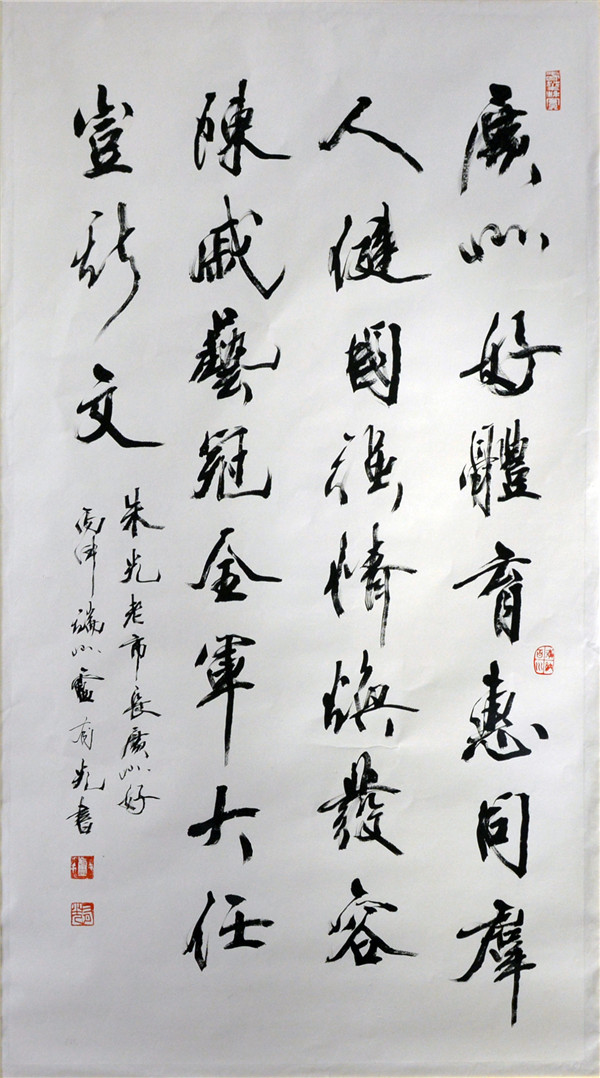 廣州好體育惠同羣
人健國強情煥發容
陳戚藝冠全軍大任
豈斯文
朱光老市長廣州好
丙申端州盧有光書